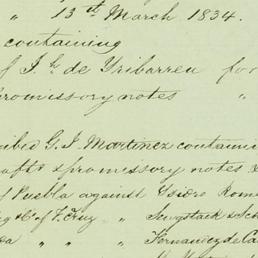 " 13th March 1834.
containing
f J. de Yribarren for
promissory notes "
ribed G. J. Martinez containi
afts & promissory notes
f Puebla against Ysidro Rom
g & Co of V. Cruz "
" " Fernandez de Ca